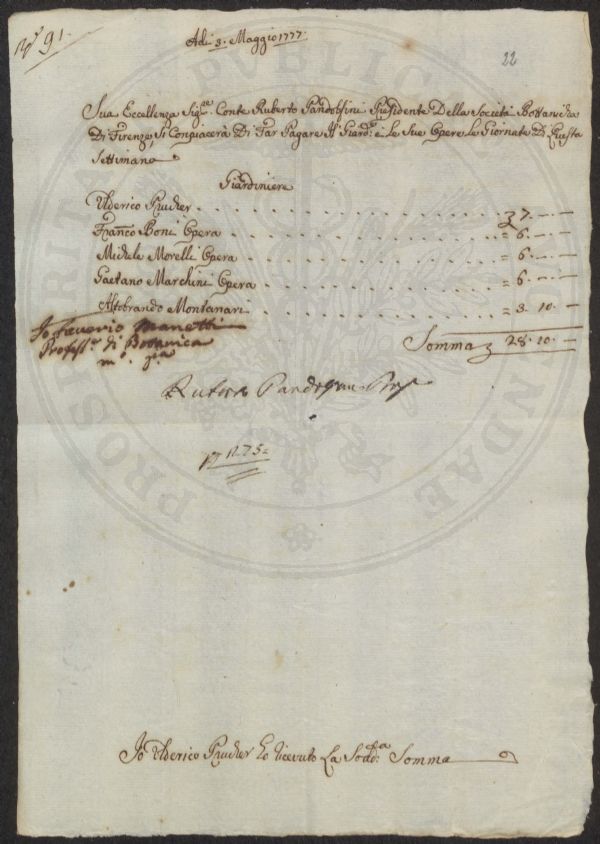 N.° 91.
22
Adi 3. Maggio 1777.
Sua Eccellenza Sig.re Conte Ruberto Pandolfini Presidente Della Società Bottanicha
Di Firenze Si Conpiacerà Di Far Pagare Al Giard.e e Le Sue Opere Le Giornate Di Questa
Settimana
Giardiniere
Ulderico Prucker . . . . . . . . . . . . 7. — . —
Franc.o Boni Opera . . . . . . . . . . = 6. — . —
Michele Morelli Opera . . . . . . . . = 6. — . —
Gaetano Marchini Opera . . . . . . . = 6. — . —
Altobrando Montanari . . . . . . . . = 3. 10. —
Io Saverio Manetti
Profess.re di Botanica
m.o p.a
Somma 28. 10. —
Ruberto Pandolfini
Io Ulderico Prucker Ho ricevuto La Sod.a Somma
PUBLICAE
PROSPERITATI